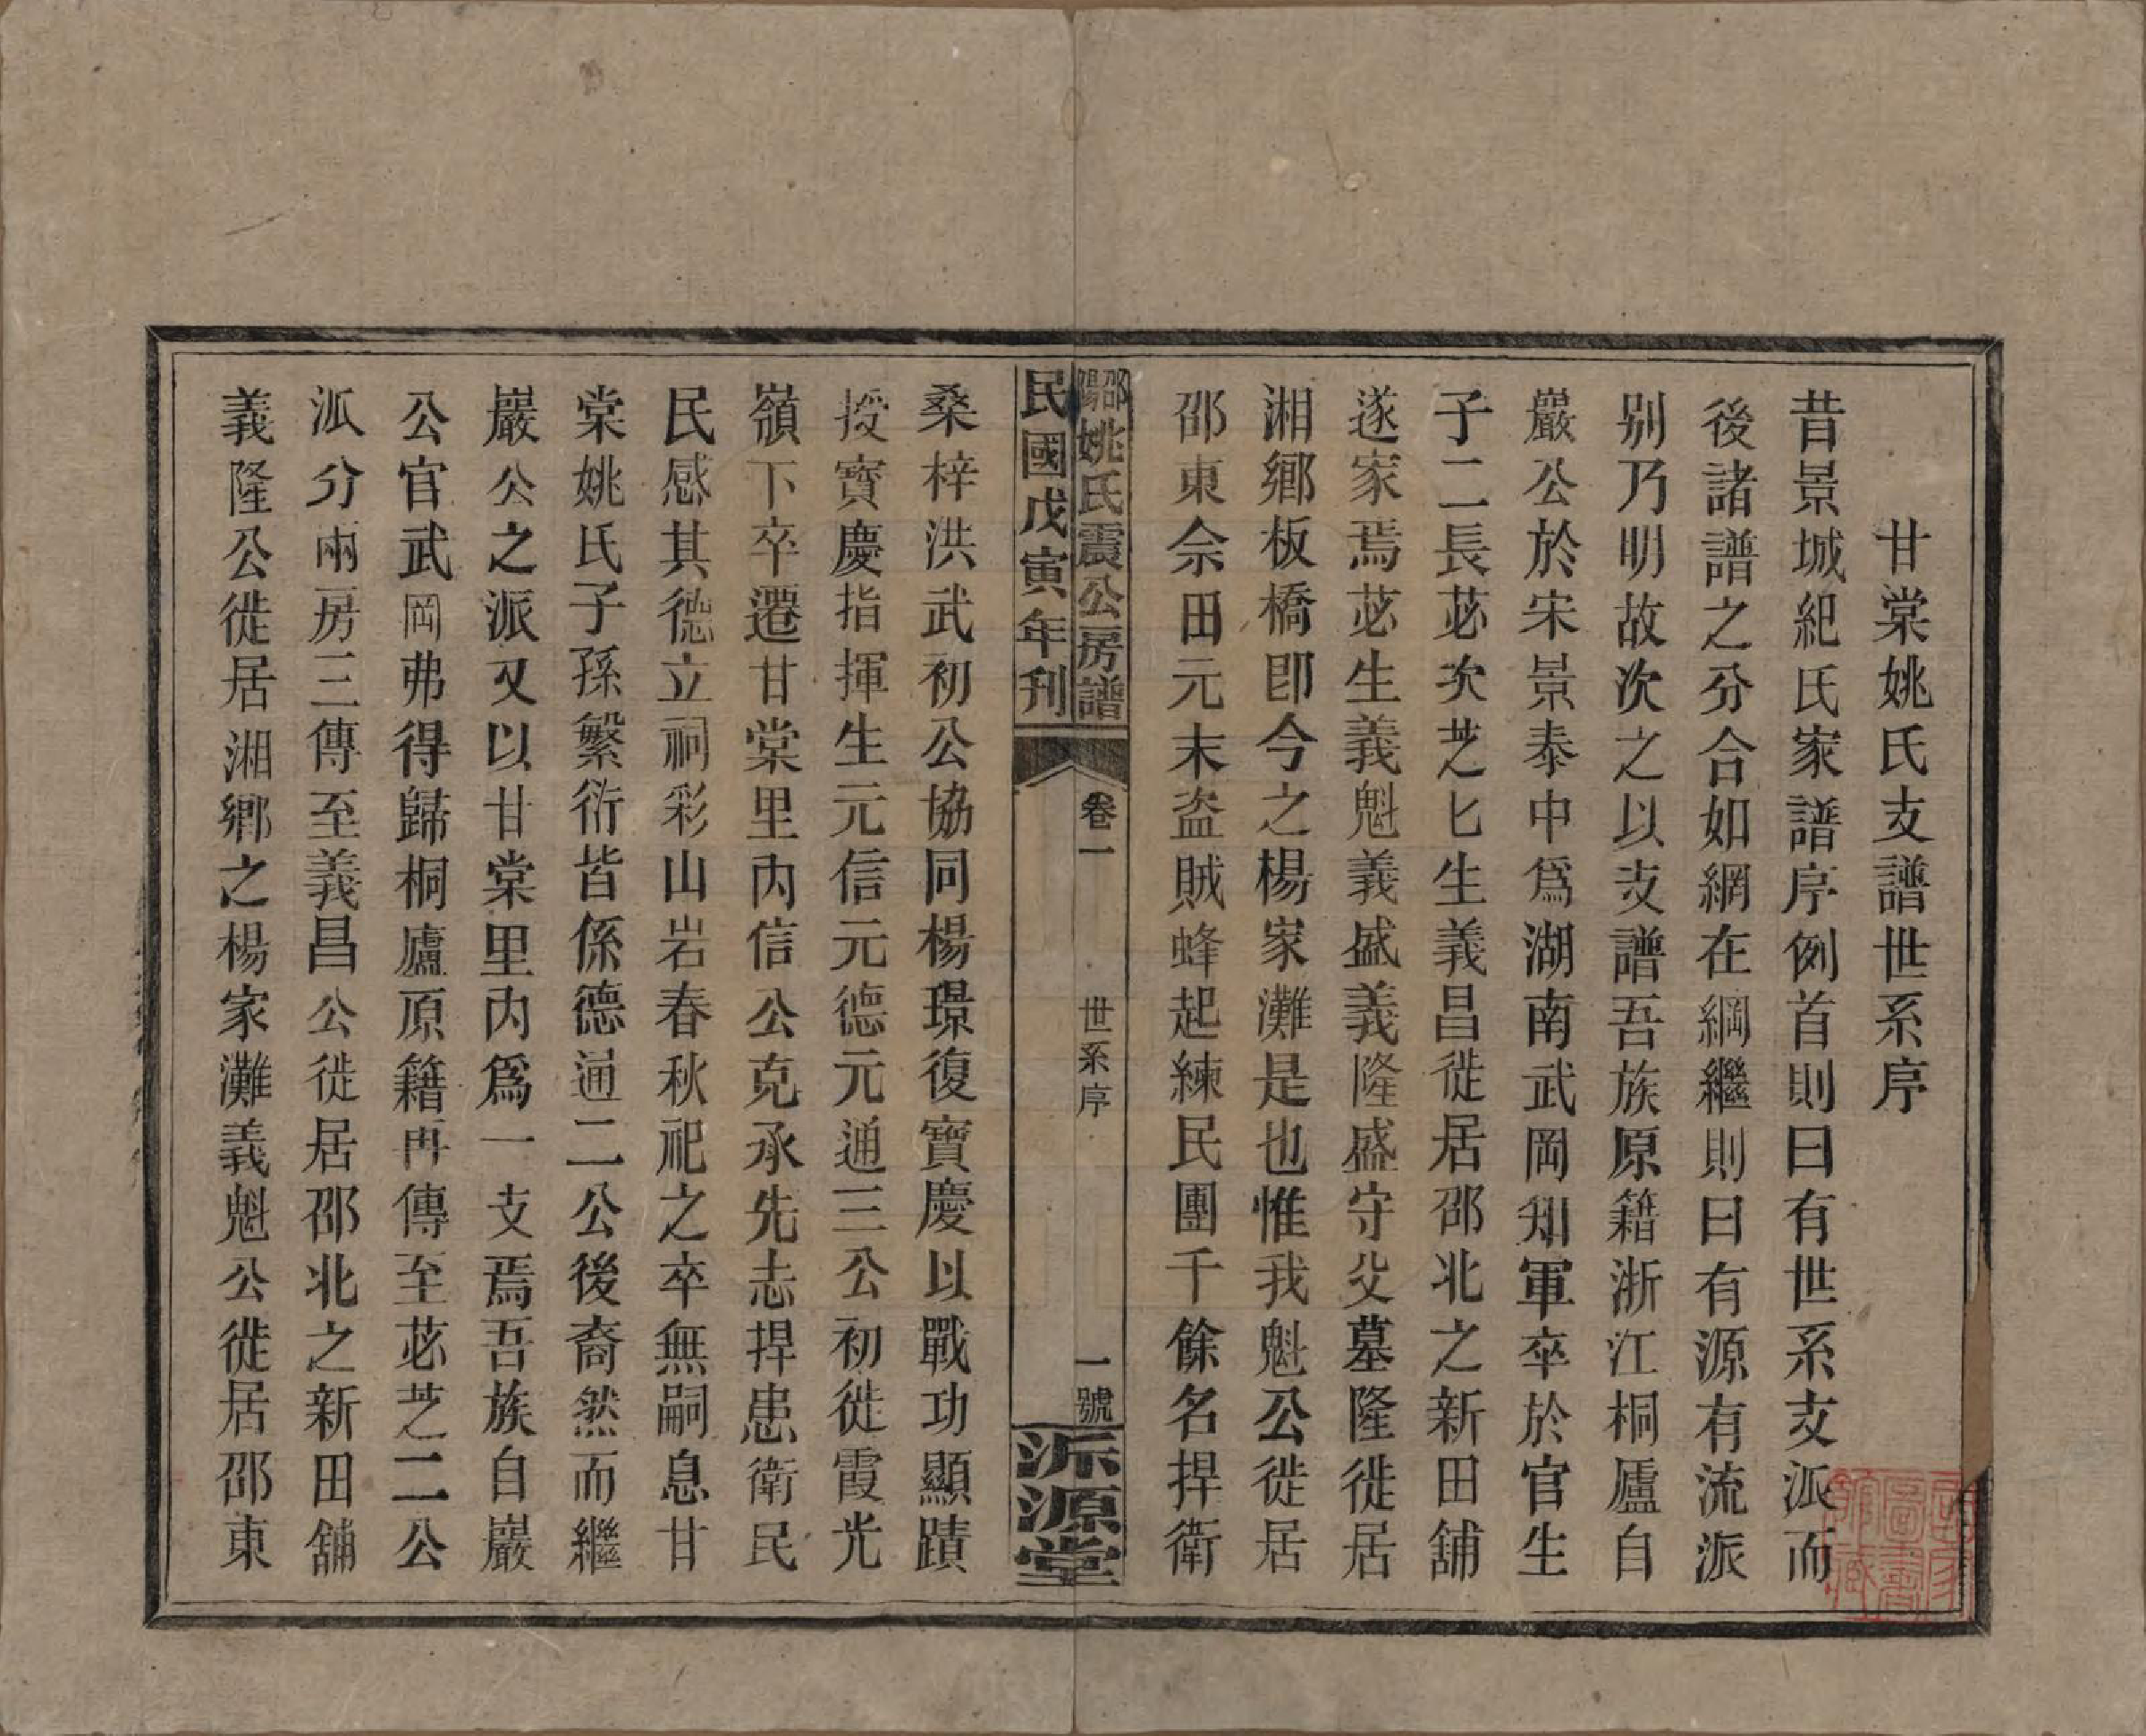 甘棠姚氏支譜世系序
昔景城紀氏家譜序例首則曰有世系支派而
後諸譜之分合如網在綱繼則曰有源有流派
别乃明故次之以支譜吾族原籍浙江桐廬自
巖公於宋景泰中爲湖南武岡知軍卒於官生
子二長苾次芝匕生義昌徙居邵北之新田舖
遂家焉苾生義魁義盛義隆盛守父墓隆徙居
湘鄉板橋卽今之楊家灘是也惟我魁公徙居
邵東佘田元末盗賊蜂起練民團千餘名捍衛
邵陽姚氏震公房譜
卷一
世系序
一號
民國戊寅年刋
派源堂
桑梓洪武初公協同楊璟復寶慶以戰功顯蹟
授寶慶指揮生元信元德元通三公初徙霞光
嶺下卒遷甘棠里内信公克承先志捍患衛民
民感其德立祠彩山岩春秋祀之卒無嗣息甘
棠姚氏子孫繁衍皆係德通二公後裔然而繼
巖公之派又以甘棠里内爲一支焉吾族自巖
公官武岡弗得歸桐廬原籍再傳至苾芝二公
派分兩房三傳至義昌公徙居邵北之新田舖
義隆公徙居湘鄉之楊家灘義魁公徙居邵東